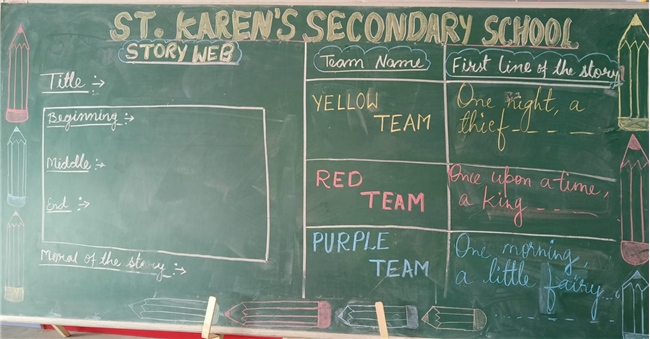 ST. KAREN'S SECONDARY SCHOOL
STORY WEB
Title :→
Beginning :→
Middle :→
End :→
Moral of the story :→
Team Name
First line of the story
YELLOW
TEAM
One night, a
thief _ _ _ _
RED
TEAM
Once upon a time,
a king _ _ _ _
PURPLE
TEAM
One morning,
a little fairy...
_ _ _ _ _ _ _ _